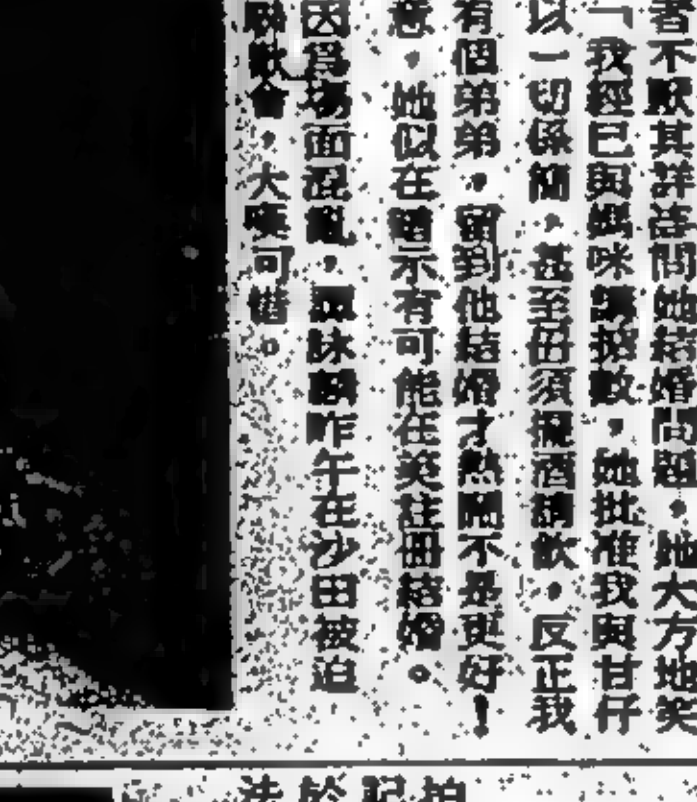 者不厭其詳詢問她結婚問題,她大方地笑
「我經已與媽咪講掂數,她批准我與甘仔
以一切係簡,甚至毋須擺酒請飲,反正我
有個弟弟,留到他結婚才熱鬧不是更好!
意,她似在暗示有可能在英註冊結婚。
因為場面混亂,昨午在沙田被迫
會,大嘆可惜。
法於記柏